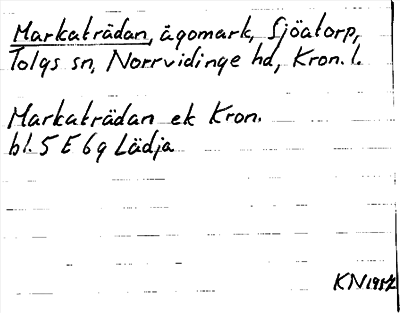 Markaträdan, ägomark, Sjöatorp,
Tolgs sn, Norrvidinge hd, Kron. l.
Markaträdan ek Kron.
bl. 5 E 6 g Lädja